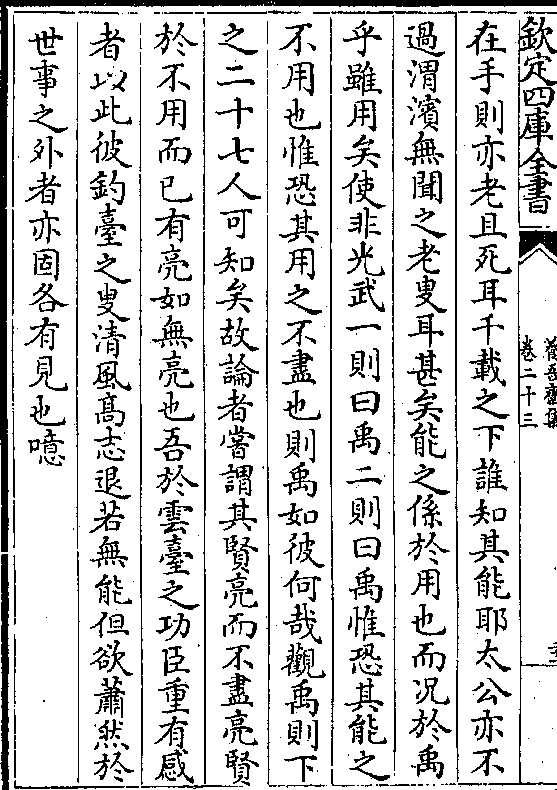 欽定四庫全書
卷二十三
在手則亦老且死耳千載之下誰知其能耶太公亦不
過渭濱無聞之老叟耳甚矣能之係於用也而况於禹
乎雖用矣使非光武一則曰禹二則曰禹惟恐其能之
不用也惟恐其用之不盡也則禹如彼何哉觀禹則下
之二十七人可知矣故論者嘗謂其賢亮而不盡亮賢
於不用而已有亮如無亮也吾於雲臺之功臣重有感
者以此彼釣臺之叟清風髙志退若無能但欲蕭然於
世事之外者亦固各有見也噫